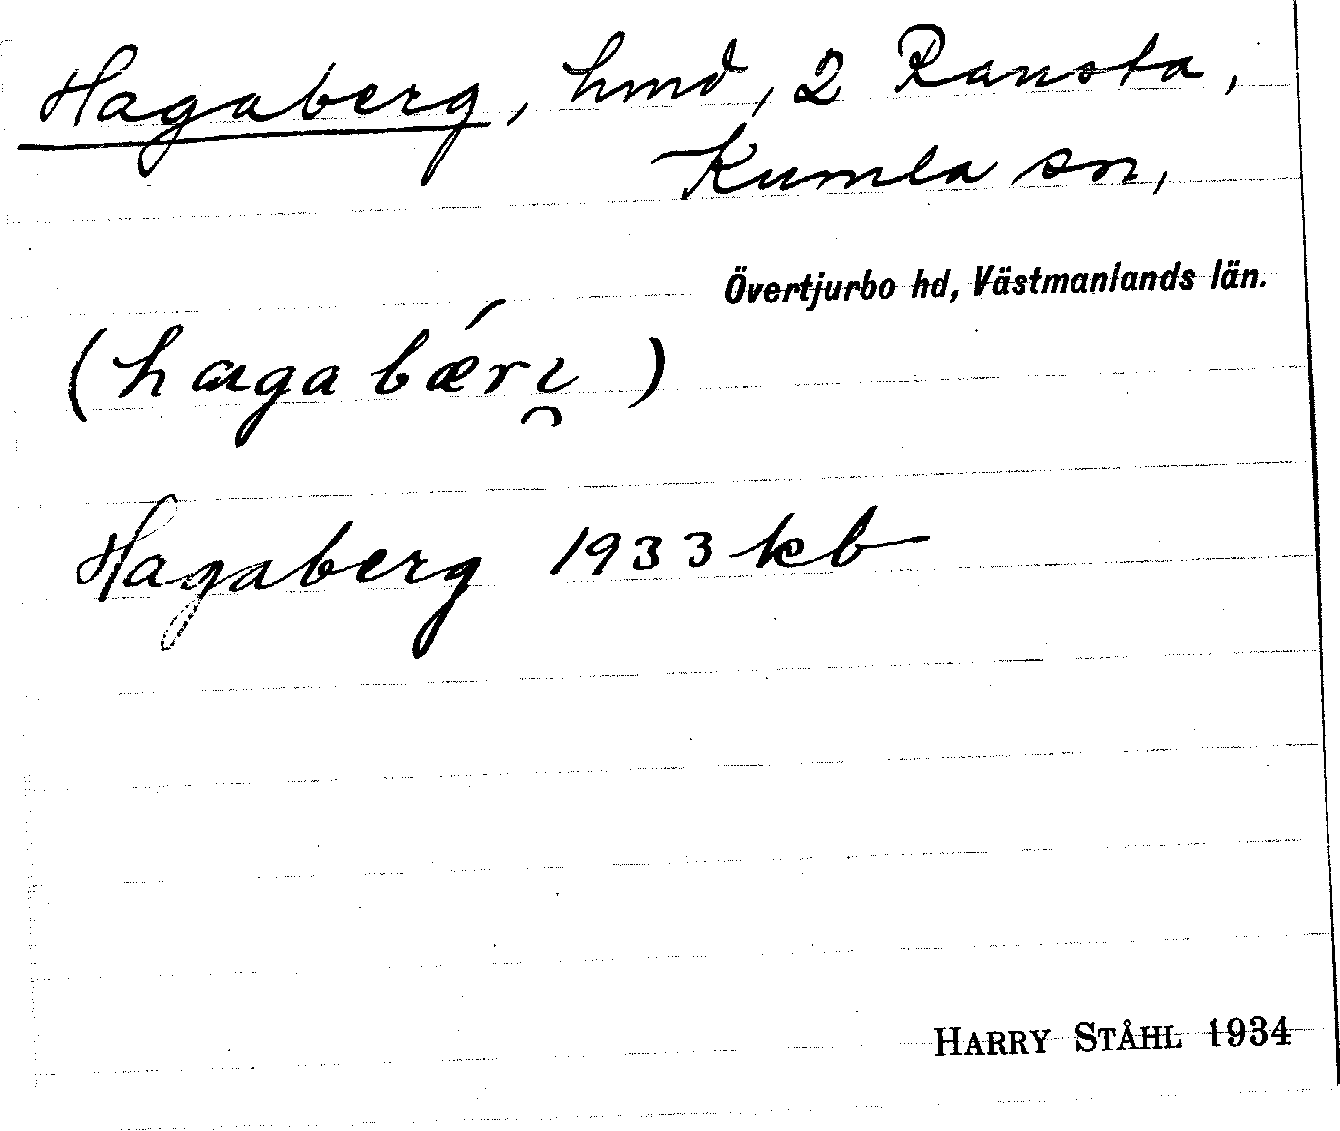 Hagaberg, hmd, 2 Ransta,
Kumla sn,
Övertjurbo hd, Västmanlands län.
(hagabǽri̯)
Hagaberg 1933 kb
HARRY STÅHL 1934